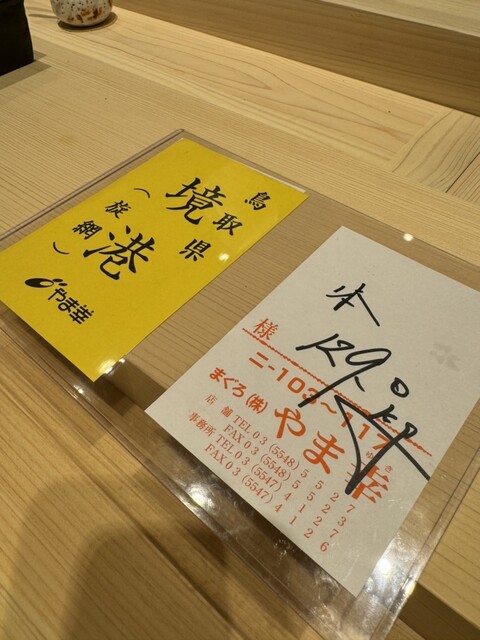 鳥取県
境港
(旋網)
やま幸
本
129.0
様
ニ-103〜117
まぐろ(株)やま幸
ゆき
店舗 TEL03(5548)5527
FAX03(5548)5523
事務所 TEL03(5547)4127
FAX03(5547)4126